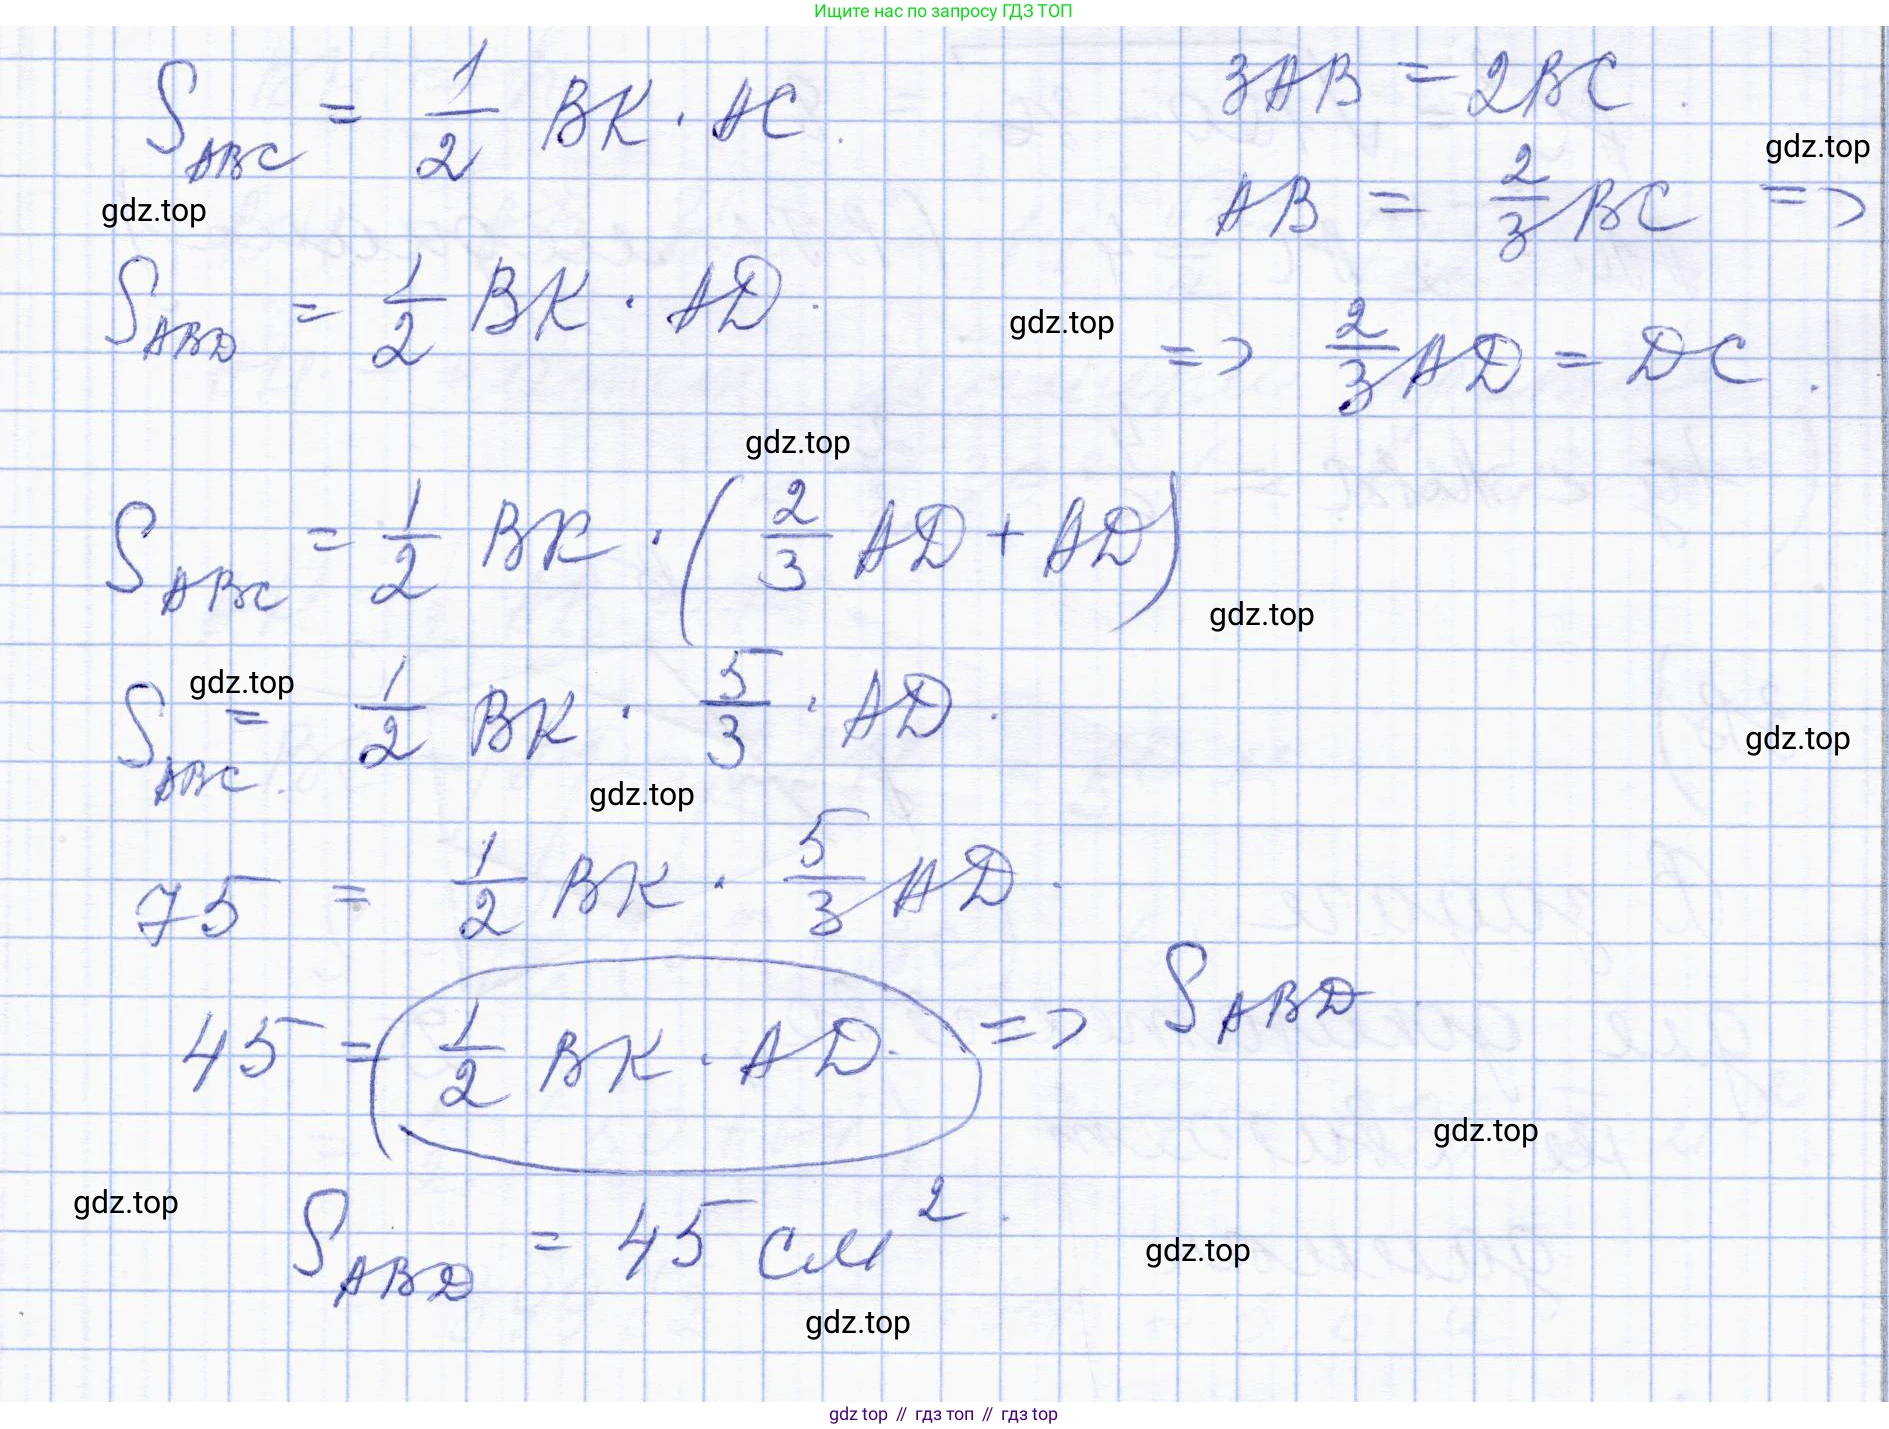 Ищите нас по запросу ГДЗ ТОП
S_ABC = 1/2 BK · AC.
3AB = 2BC.
gdz.top
AB = 2/3 BC =>
gdz.top
S_ABD = 1/2 BK · AD.
gdz.top
=> 2/3 AD = DC.
gdz.top
S_ABC = 1/2 BK · (2/3 AD + AD)
gdz.top
gdz.top
S_ABC = 1/2 BK · 5/3 · AD.
gdz.top
gdz.top
75 = 1/2 BK · 5/3 AD.
45 = 1/2 BK · AD. => S_ABD
gdz.top
gdz.top
S_ABD = 45 см².
gdz.top
gdz.top
gdz top // гдз топ // гдз top